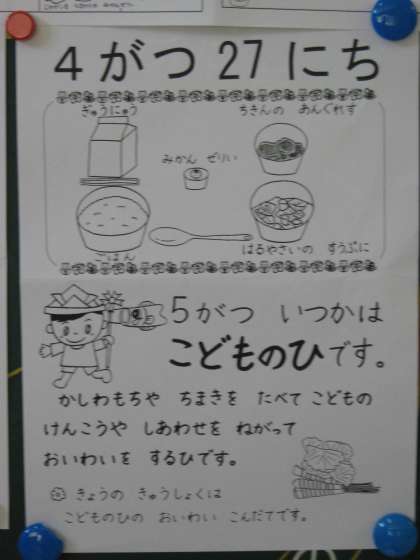 4がつ27にち
ぎゅうにゅう
ちきんの おんぐれず
みかん ぜりい
ごはん
はるやさいの すうぷに
5がつ いつかは
こどものひです。
かしわもちや ちまきを たべて こどもの
けんこうや しあわせを ねがって
おいわいを するひです。
きょうの きゅうしょくは
こどものひの おいわい こんだてです。